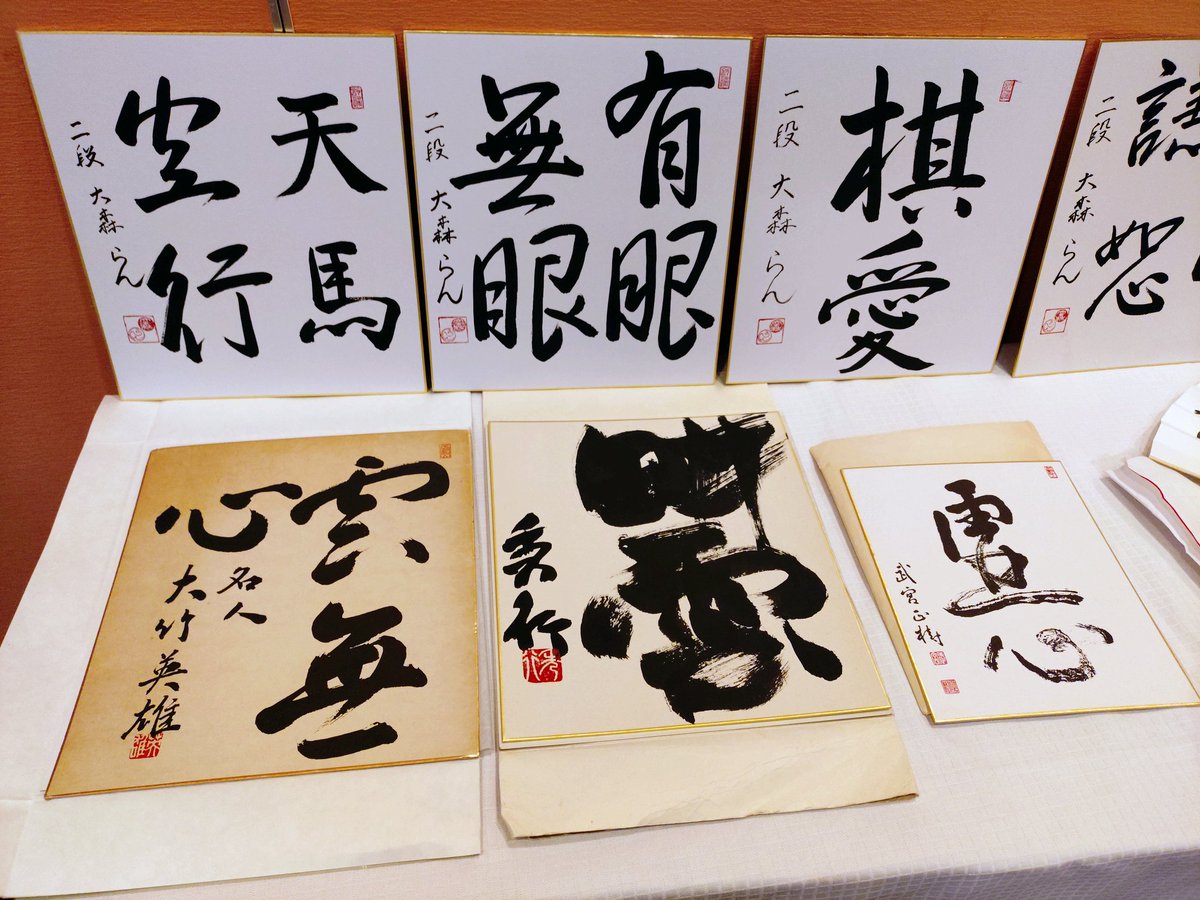 天馬
空行
二段 大森らん
有眼
無眼
二段 大森らん
棋愛
二段 大森らん
恕
二段 大森らん
雲無
心
名人
大竹英雄
雲
秀行
心
武宮正樹